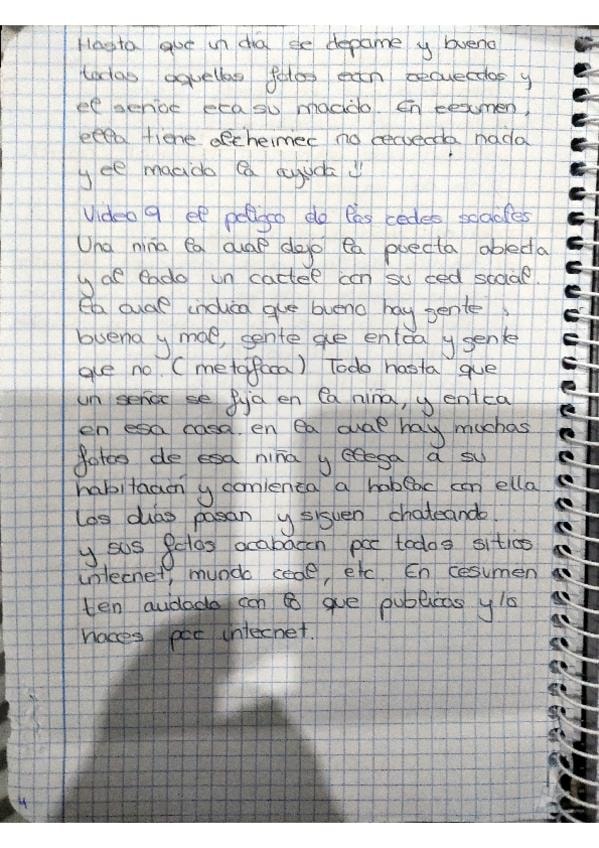 Hasta que un día se depame y bueno
todas aquellas fotos eran recuerdos y
el señor era su marido. En resumen,
ella tiene alzheimer no recuerda nada
y el marido la ayuda !!
Video 9 el peligro de las redes sociales
Una niña la cual dejó la puerta abierta
y al lado un cartel con su red social.
la cual indica que bueno hay gente
buena y mal, gente que entra y gente
que no. (metáfora) Todo hasta que
un señor se fija en la niña, y entra
en esa casa. en la cual hay muchas
fotos de esa niña y llega a su
habitación y comienza a hablar con ella
los días pasan y siguen chateando.
y sus fotos acabaron por todos sitios
internet, mundo real, etc. En resumen
ten cuidado con lo que publicas y lo
haces por internet.
4